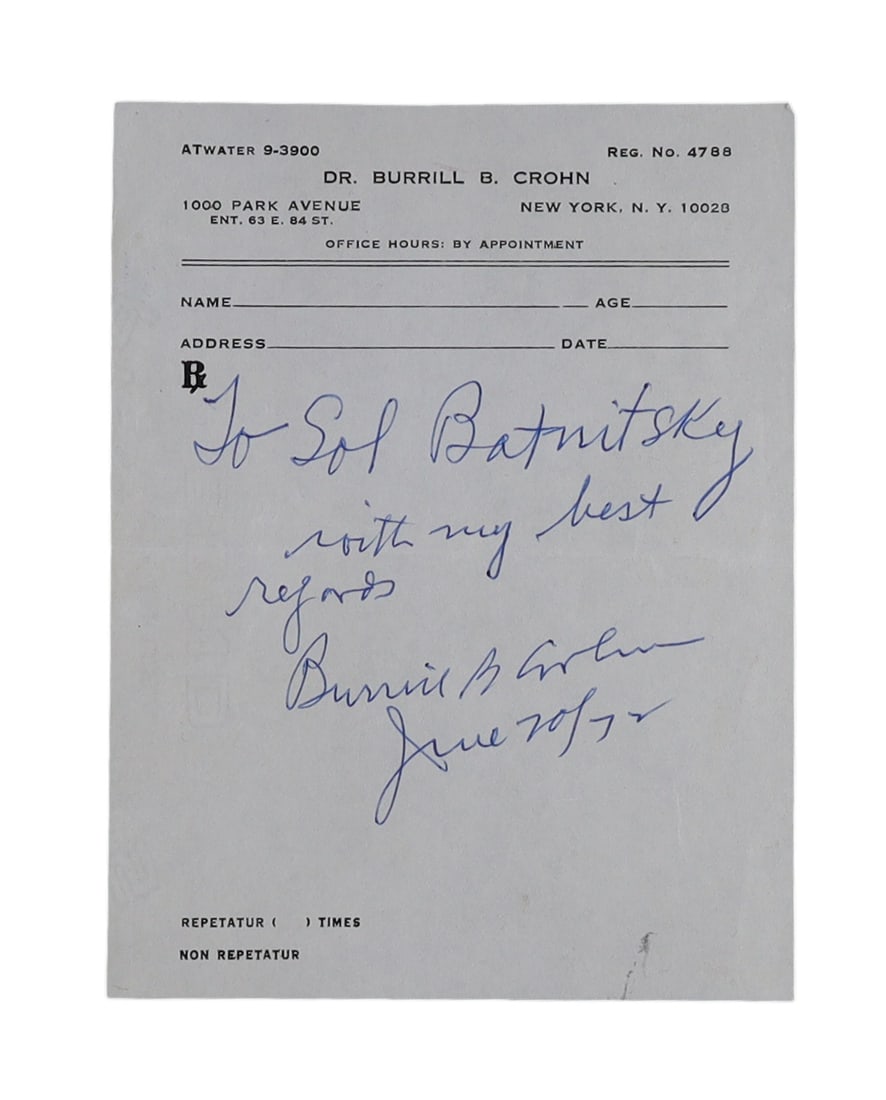 ATWATER 9-3900 REG. NO. 4788
DR. BURRILL B. CROHN
1000 PARK AVENUE NEW YORK, N. Y. 10028
ENT. 63 E. 84 ST.
OFFICE HOURS: BY APPOINTMENT
NAME AGE
ADDRESS DATE
℞
To Sol Batnitsky
with my best
regards
Burrill B Crohn
June 20/72
REPETATUR ( ) TIMES
NON REPETATUR